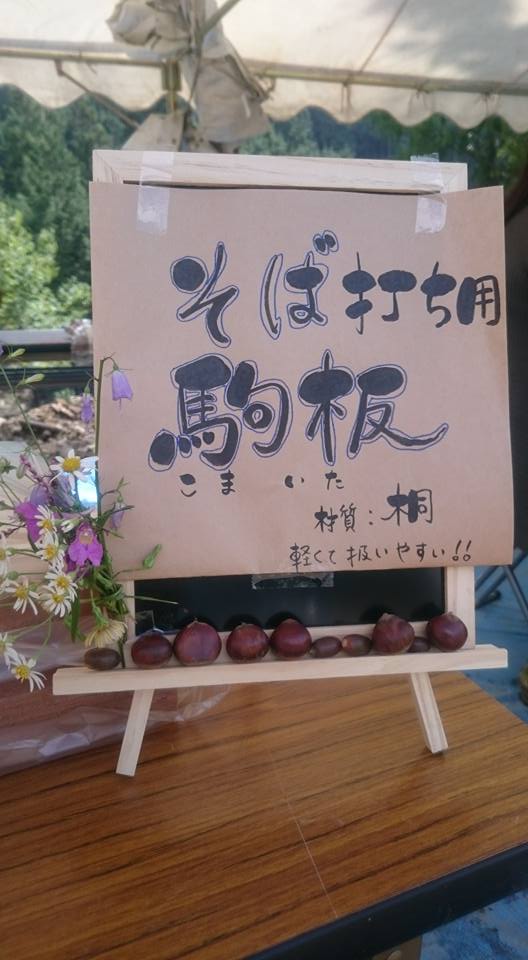 そば打ち用
駒板
こまいた
材質：桐
軽くて扱いやすい!!